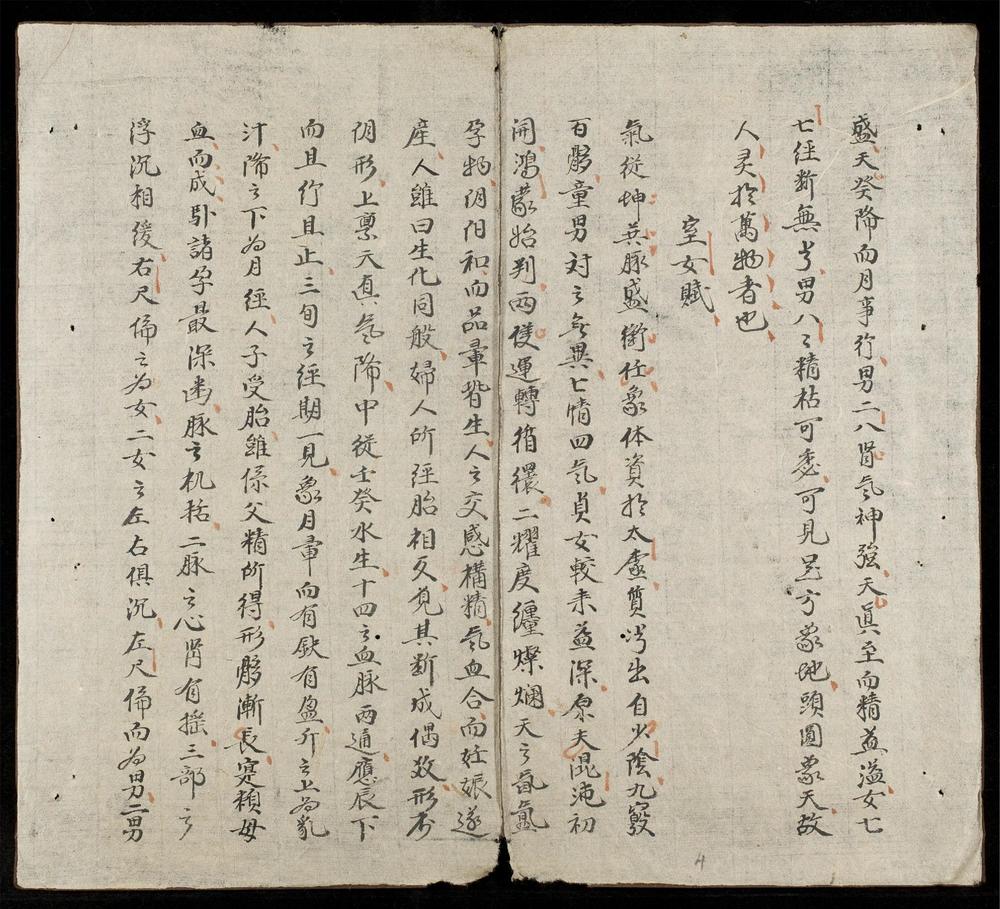 盛天癸降而月事行男二八腎氣神強天真至而精益溢女七
七經断無子男八〻精枯可委可見足方象地頭圓象天故
人灵於萬物者也
室女賦
氣從坤兵脉盛衝任象体資於太虛質出自少陰九竅
百骸童男対之無異七情四気貞女較来益深原夫混沌初
開鴻蒙始判两儀運轉循環二耀度纏燦爛天之氤氳
孕物阴阳和而品彙皆生人之交感構精气血合而妊娠遂
産人雖曰生化同般婦人所經胎相久見其断成偶数形不
阴形上禀天真气降中従壬癸水生十四之血脉两通應辰下
而且行且止三旬之經期一見象月事而有缺有盈升之上為乳
汁降之下為月經人子受胎雖係父精所得形骸漸長寔頼母
血而成卧諸孕最深幽脉之机括二脉之心腎有揺三部之
浮沉相缓右尺偏之為女二女之左右俱沉左尺偏而為男二男
4